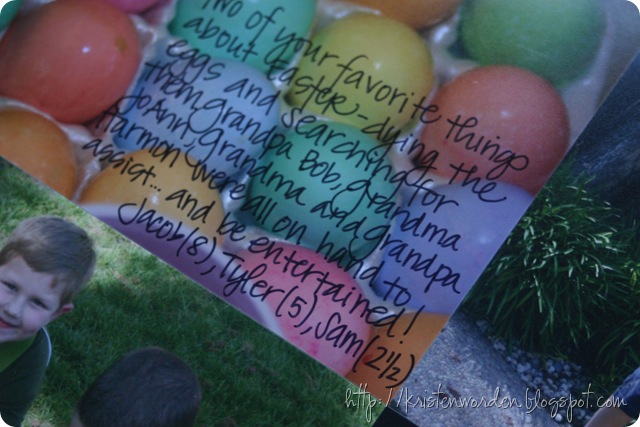 Two of your favorite things
about Easter - dying the
eggs and searching for
them. Grandpa Bob, Grandma
JoAnn, Grandma and Grandpa
Harmon were all on hand to
assist... and be entertained!
Jacob(8), Tyler(5), Sam(2½)
http://kristenworden.blogspot.com